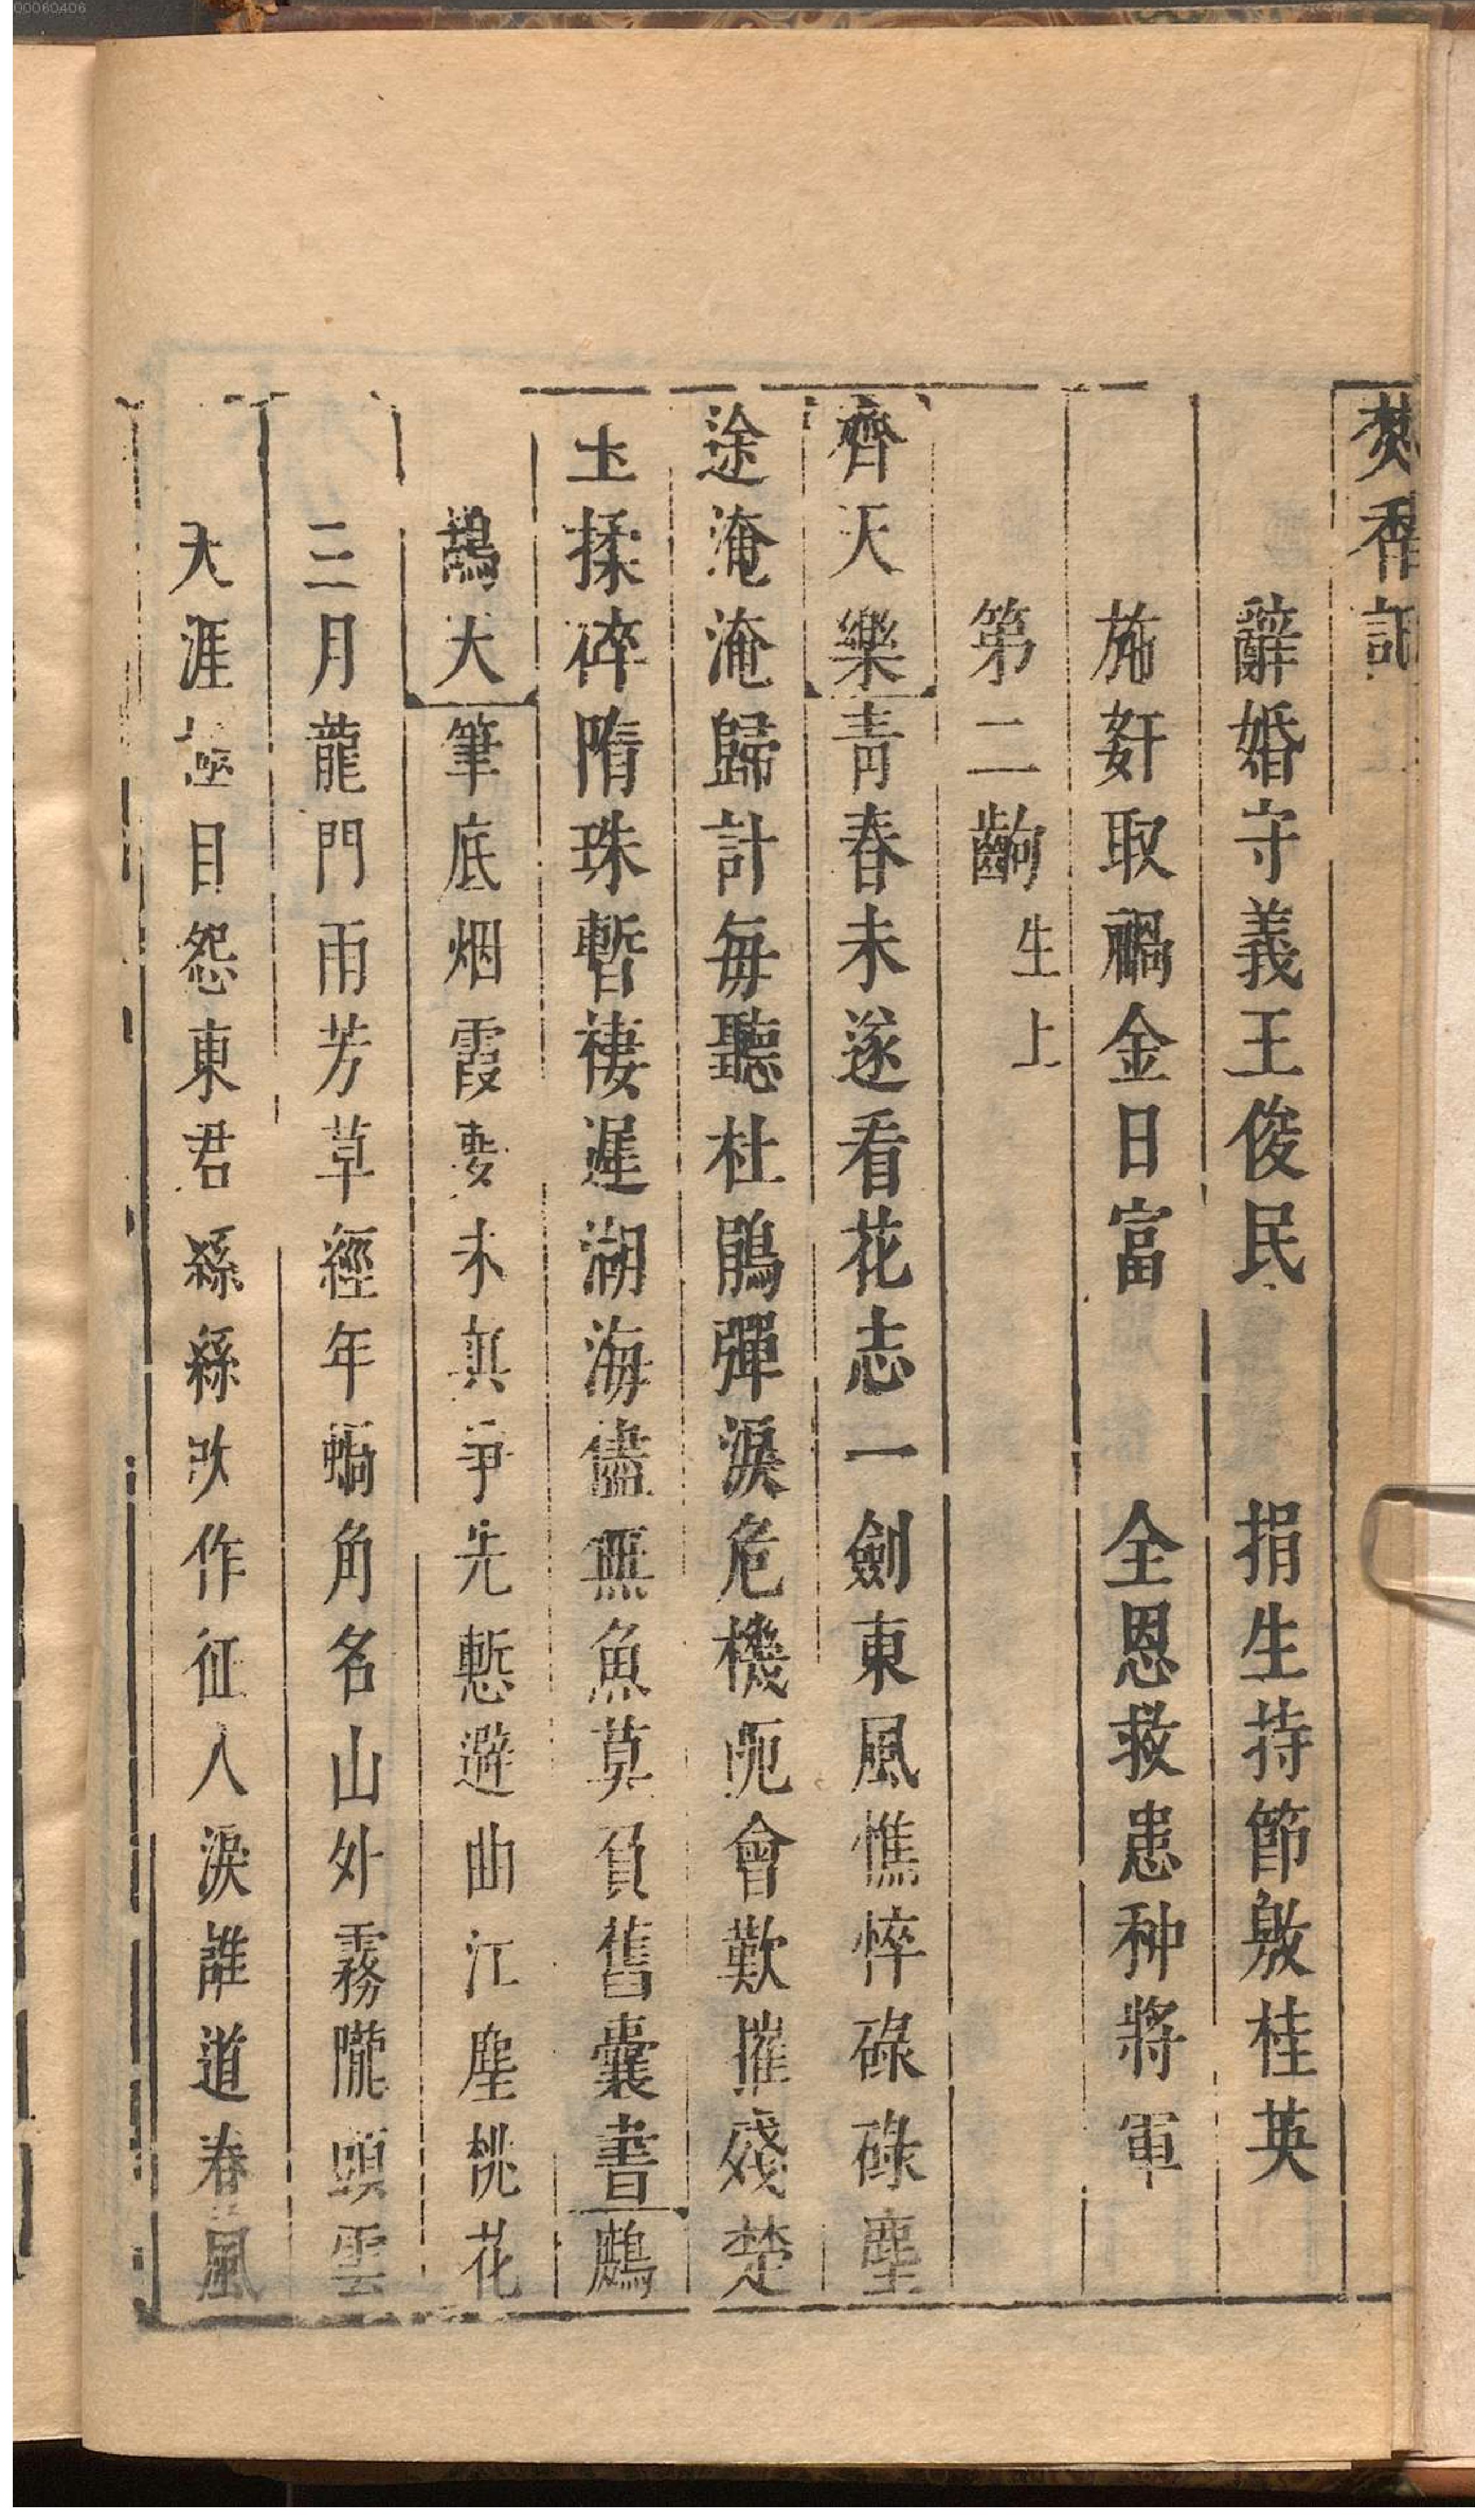 00060406
焚香記
辭婚守義王俊民 捐生持節敫桂英
施奸取禍金日富 全恩救患种將軍
第二齣 生上
齊天樂青春未遂看花志一劍東風憔悴碌碌塵
途淹淹歸計每聽杜鵑彈淚危機阨會歎摧殘楚
玉揉碎隋珠暫棲遲湖海儘無魚莫負舊囊書鷓
鴣天筆底烟霞要未真爭先慙避曲江塵桃花
三月龍門雨芳草經年蝸角名山外霧隴頭雲
天涯極目怨東君絲絲改作征人淚誰道春風